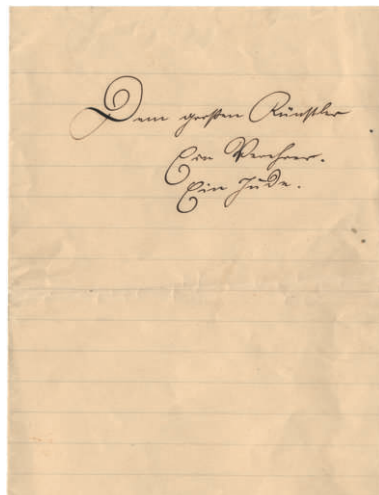 Dem großen Künstler
Ein Verehrer.
Ein Jude.